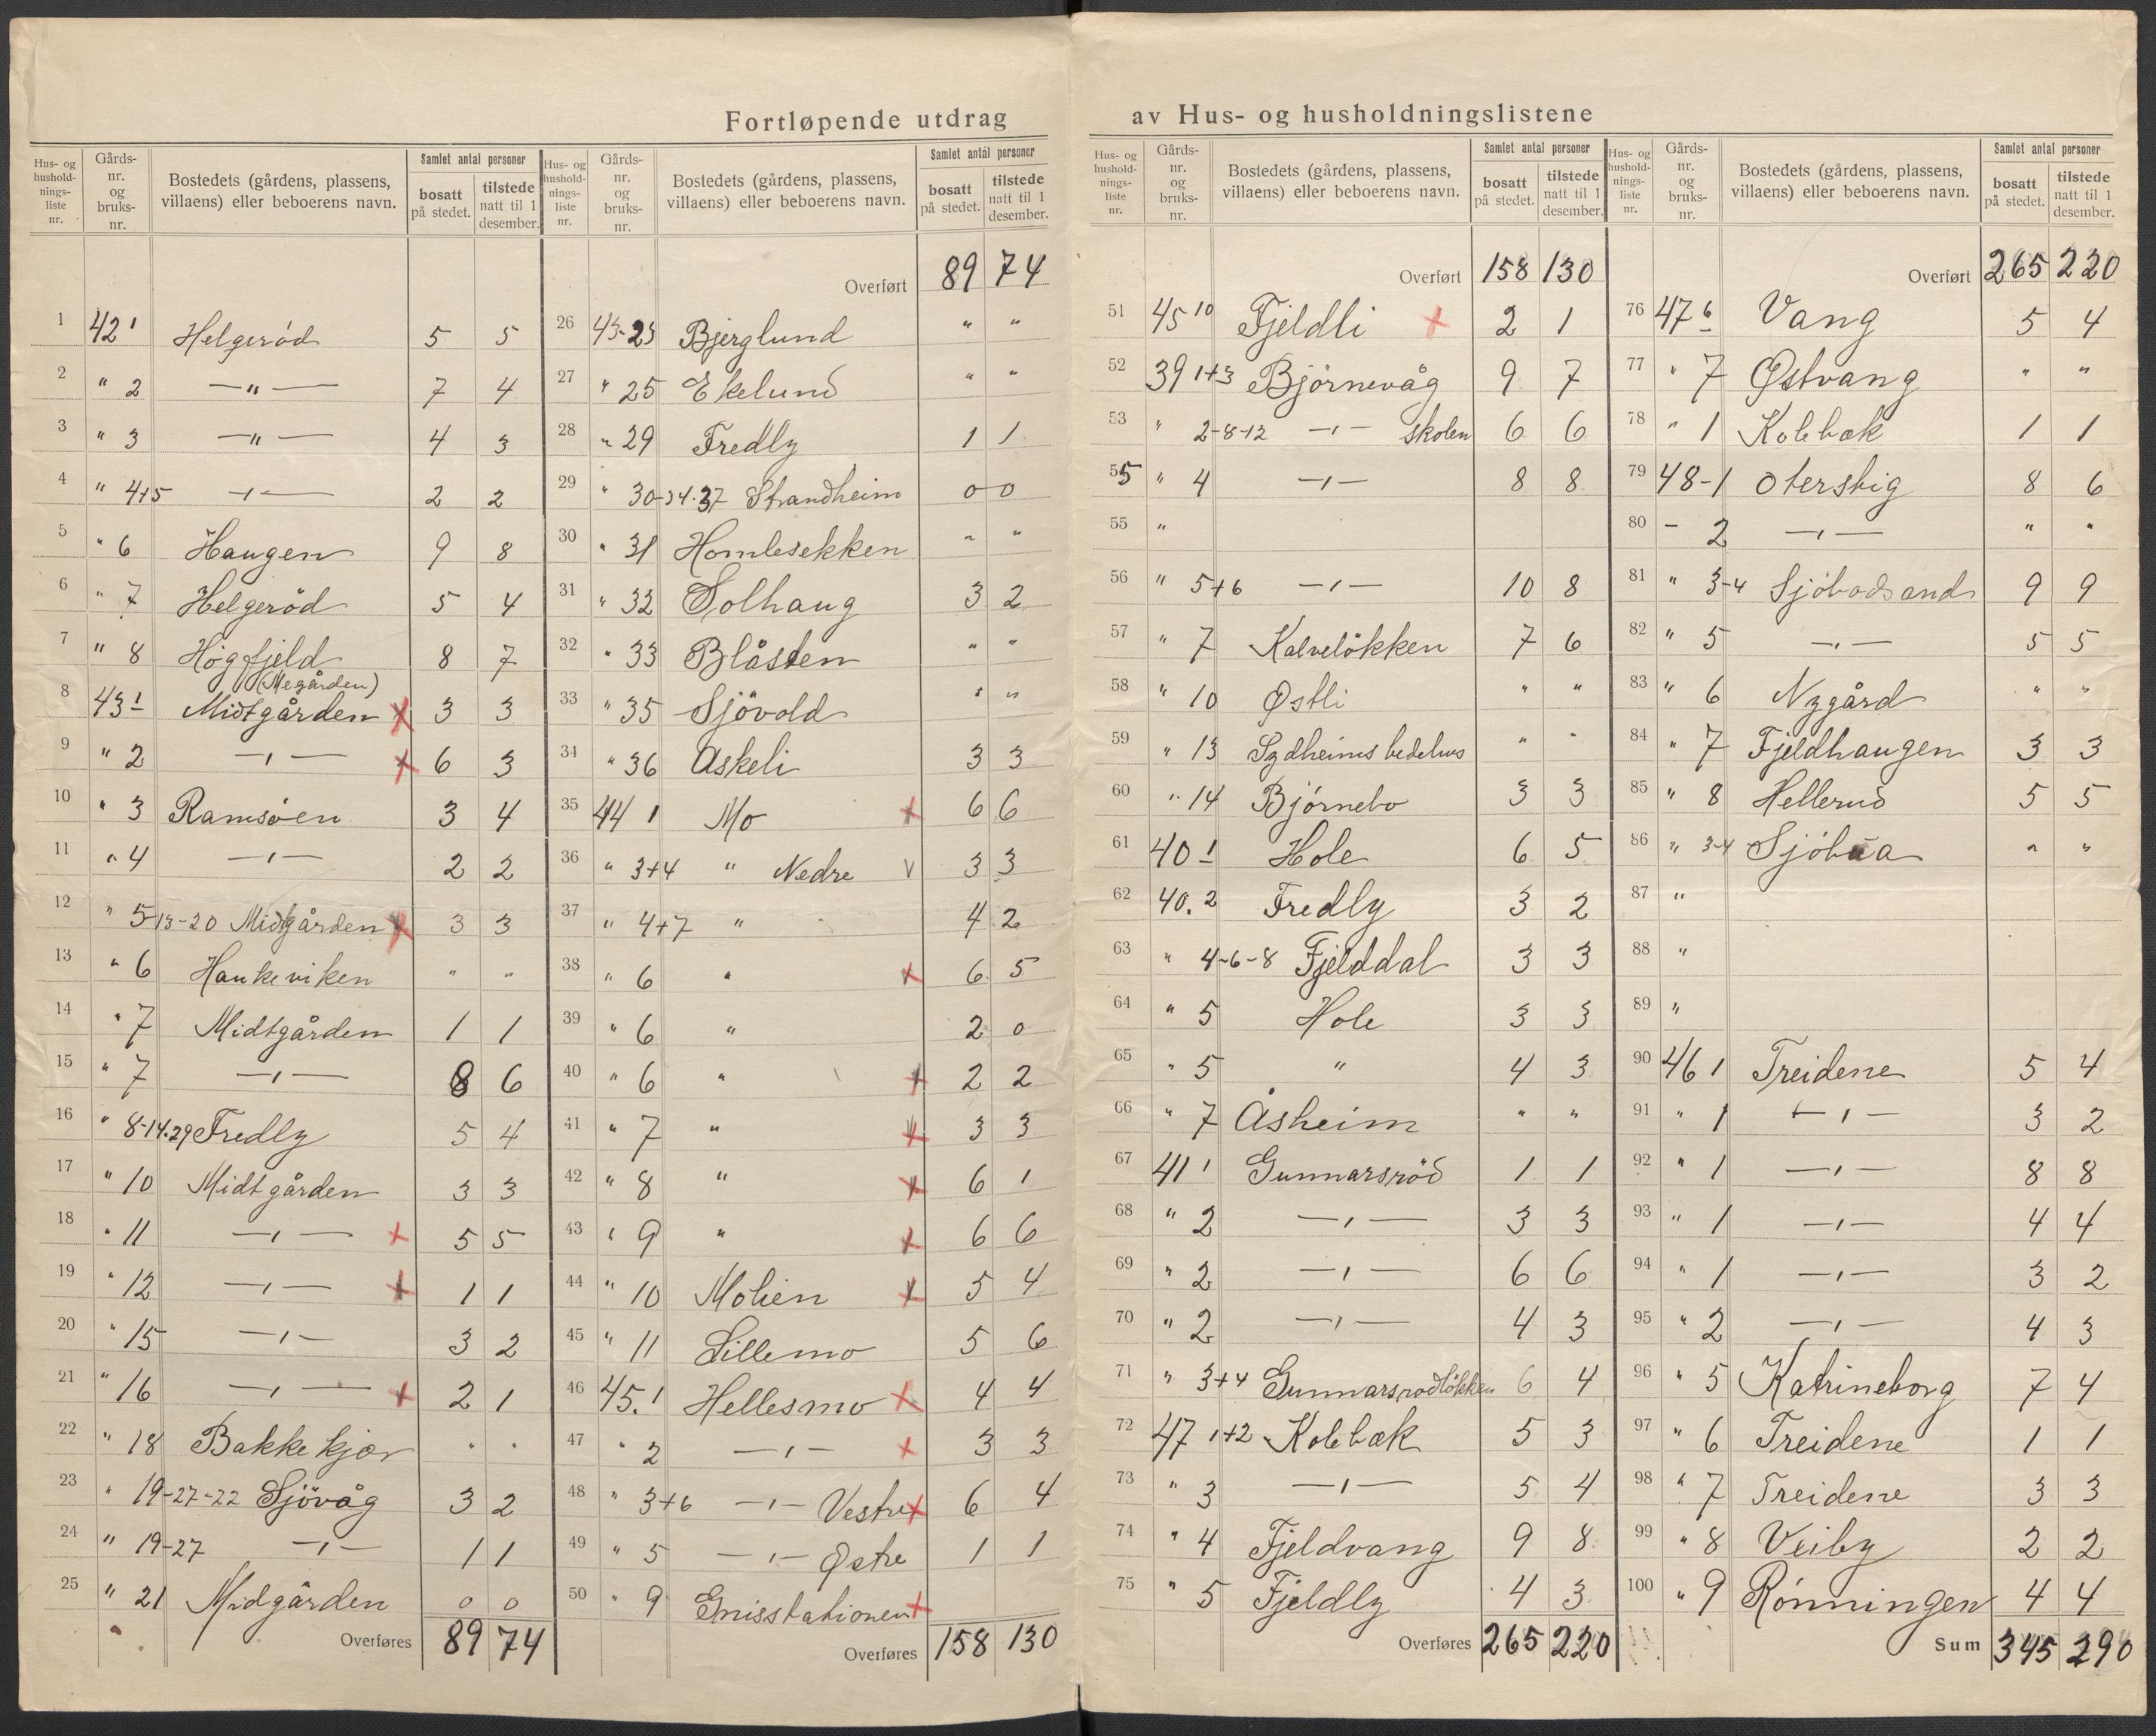 Fortløpende utdrag av Hus- og husholdningslistene
Hus- og hushold- nings- liste nr. Gårds- nr. og bruks- nr. Bostedets (gårdens, plassens, villaens) eller beboerens navn. Samlet antal personer bosatt på stedet. tilstede natt til 1 desember.
1 42 1 Helgeröd 5 5
2 " 2 —"— 7 4
3 " 3 —"— 4 3
4 " 4+5 —"— 2 2
5 " 6 Haugen 9 8
6 " 7 Helgeröd 5 4
7 " 8 Högfjeld 8 7
(Megården)
8 43 1 Midtgården x 3 3
9 " 2 —"— x 6 3
10 " 3 Ramsöen 3 4
11 " 4 —"— 2 2
12 " 5-13-20 Midtgården x 3 3
13 " 6 Hankeviken " "
14 " 7 Midtgården 1 1
15 " 7 —"— 8 6
16 " 8-14.29 Fredly 5 4
17 " 10 Midtgården 3 3
18 " 11 —"— x 5 5
19 " 12 —"— x 1 1
20 " 15 —"— 3 2
21 " 16 —"— x 2 1
22 " 18 Bakkekjær " "
23 " 19-27-22 Sjövåg 3 2
24 " 19-27 —"— 1 1
25 " 21 Midgården 0 0
Overføres 89 74
Hus- og hushold- nings- liste nr. Gårds- nr. og bruks- nr. Bostedets (gårdens, plassens, villaens) eller beboerens navn. Samlet antal personer bosatt på stedet. tilstede natt til 1 desember.
Overført 89 74
26 43-23 Bjerglund " "
27 " 25 Ekelund " "
28 " 29 Fredly 1 1
29 " 30-34.37 Strandheim 0 0
30 " 31 Homlesekken " "
31 " 32 Solhaug 3 2
32 " 33 Blåsten " "
33 " 35 Sjövold " "
34 " 36 Askeli 3 3
35 44 1 Mo x 6 6
36 " 3+4 " Nedre v 3 3
37 " 4+7 " 4 2
38 " 6 " x 6 5
39 " 6 " 2 0
40 " 6 " x 2 2
41 " 7 " x 3 3
42 " 8 " x 6 1
43 " 9 " x 6 6
44 " 10 Molien x 5 4
45 " 11 Lillemo 5 6
46 45.1 Hellesmo x 4 4
47 " 2 —"— x 3 3
48 " 3+6 —"— Vestre x 6 4
49 " 5 —"— Østre 1 1
50 " 9 Gnisstationen x
Overføres 158 130
Hus- og hushold- nings- liste nr. Gårds- nr. og bruks- nr. Bostedets (gårdens, plassens, villaens) eller beboerens navn. Samlet antal personer bosatt på stedet. tilstede natt til 1 desember.
Overført 158 130
51 45 10 Fjeldli x 2 1
52 39 1+3 Björnevåg 9 7
53 " 2-8-12 —"— skolen 6 6
55 " 4 —"— 8 8
55 "
56 " 5+6 —"— 10 8
57 " 7 Kalvelökken 7 6
58 " 10 Østli " "
59 " 13 Sydheims bedehus " "
60 " 14 Björnebo 3 3
61 40 1 Hole 6 5
62 40.2 Fredly 3 2
63 " 4-6-8 Fjelddal 3 3
64 " 5 Hole 3 3
65 " 5 " 4 3
66 " 7 Åsheim " "
67 41 1 Gunnarsröd 1 1
68 " 2 —"— 3 3
69 " 2 —"— 6 6
70 " 2 —"— 4 3
71 " 3+4 Gunnarsrödlökken 6 4
72 47 1+2 Kolebæk 5 3
73 " 3 —"— 5 4
74 " 4 Fjeldvang 9 8
75 " 5 Fjeldly 4 3
Overføres 265 220
Hus- og hushold- nings- liste nr. Gårds- nr. og bruks- nr. Bostedets (gårdens, plassens, villaens) eller beboerens navn. Samlet antal personer bosatt på stedet. tilstede natt til 1 desember.
Overført 265 220
76 47 6 Vang 5 4
77 " 7 Østvang " "
78 " 1 Kolebæk 1 1
79 48-1 Oterstig 8 6
80 - 2 —"— " "
81 " 3-4 Sjöbodsand 9 9
82 " 5 —"— 5 5
83 " 6 Nygård " "
84 " 7 Fjeldhaugen 3 3
85 " 8 Hellerud 5 5
86 " 3-4 Sjöbua " "
87 "
88 "
89 "
90 46 1 Treidene 5 4
91 " 1 —"— 3 2
92 " 1 —"— 8 8
93 " 1 —"— 4 4
94 " 1 —"— 3 2
95 " 2 —"— 4 3
96 " 5 Katrineborg 7 4
97 " 6 Treidene 1 1
98 " 7 Treidene 3 3
99 " 8 Veiby 2 2
100 " 9 Rönningen 4 4
Sum 345 290